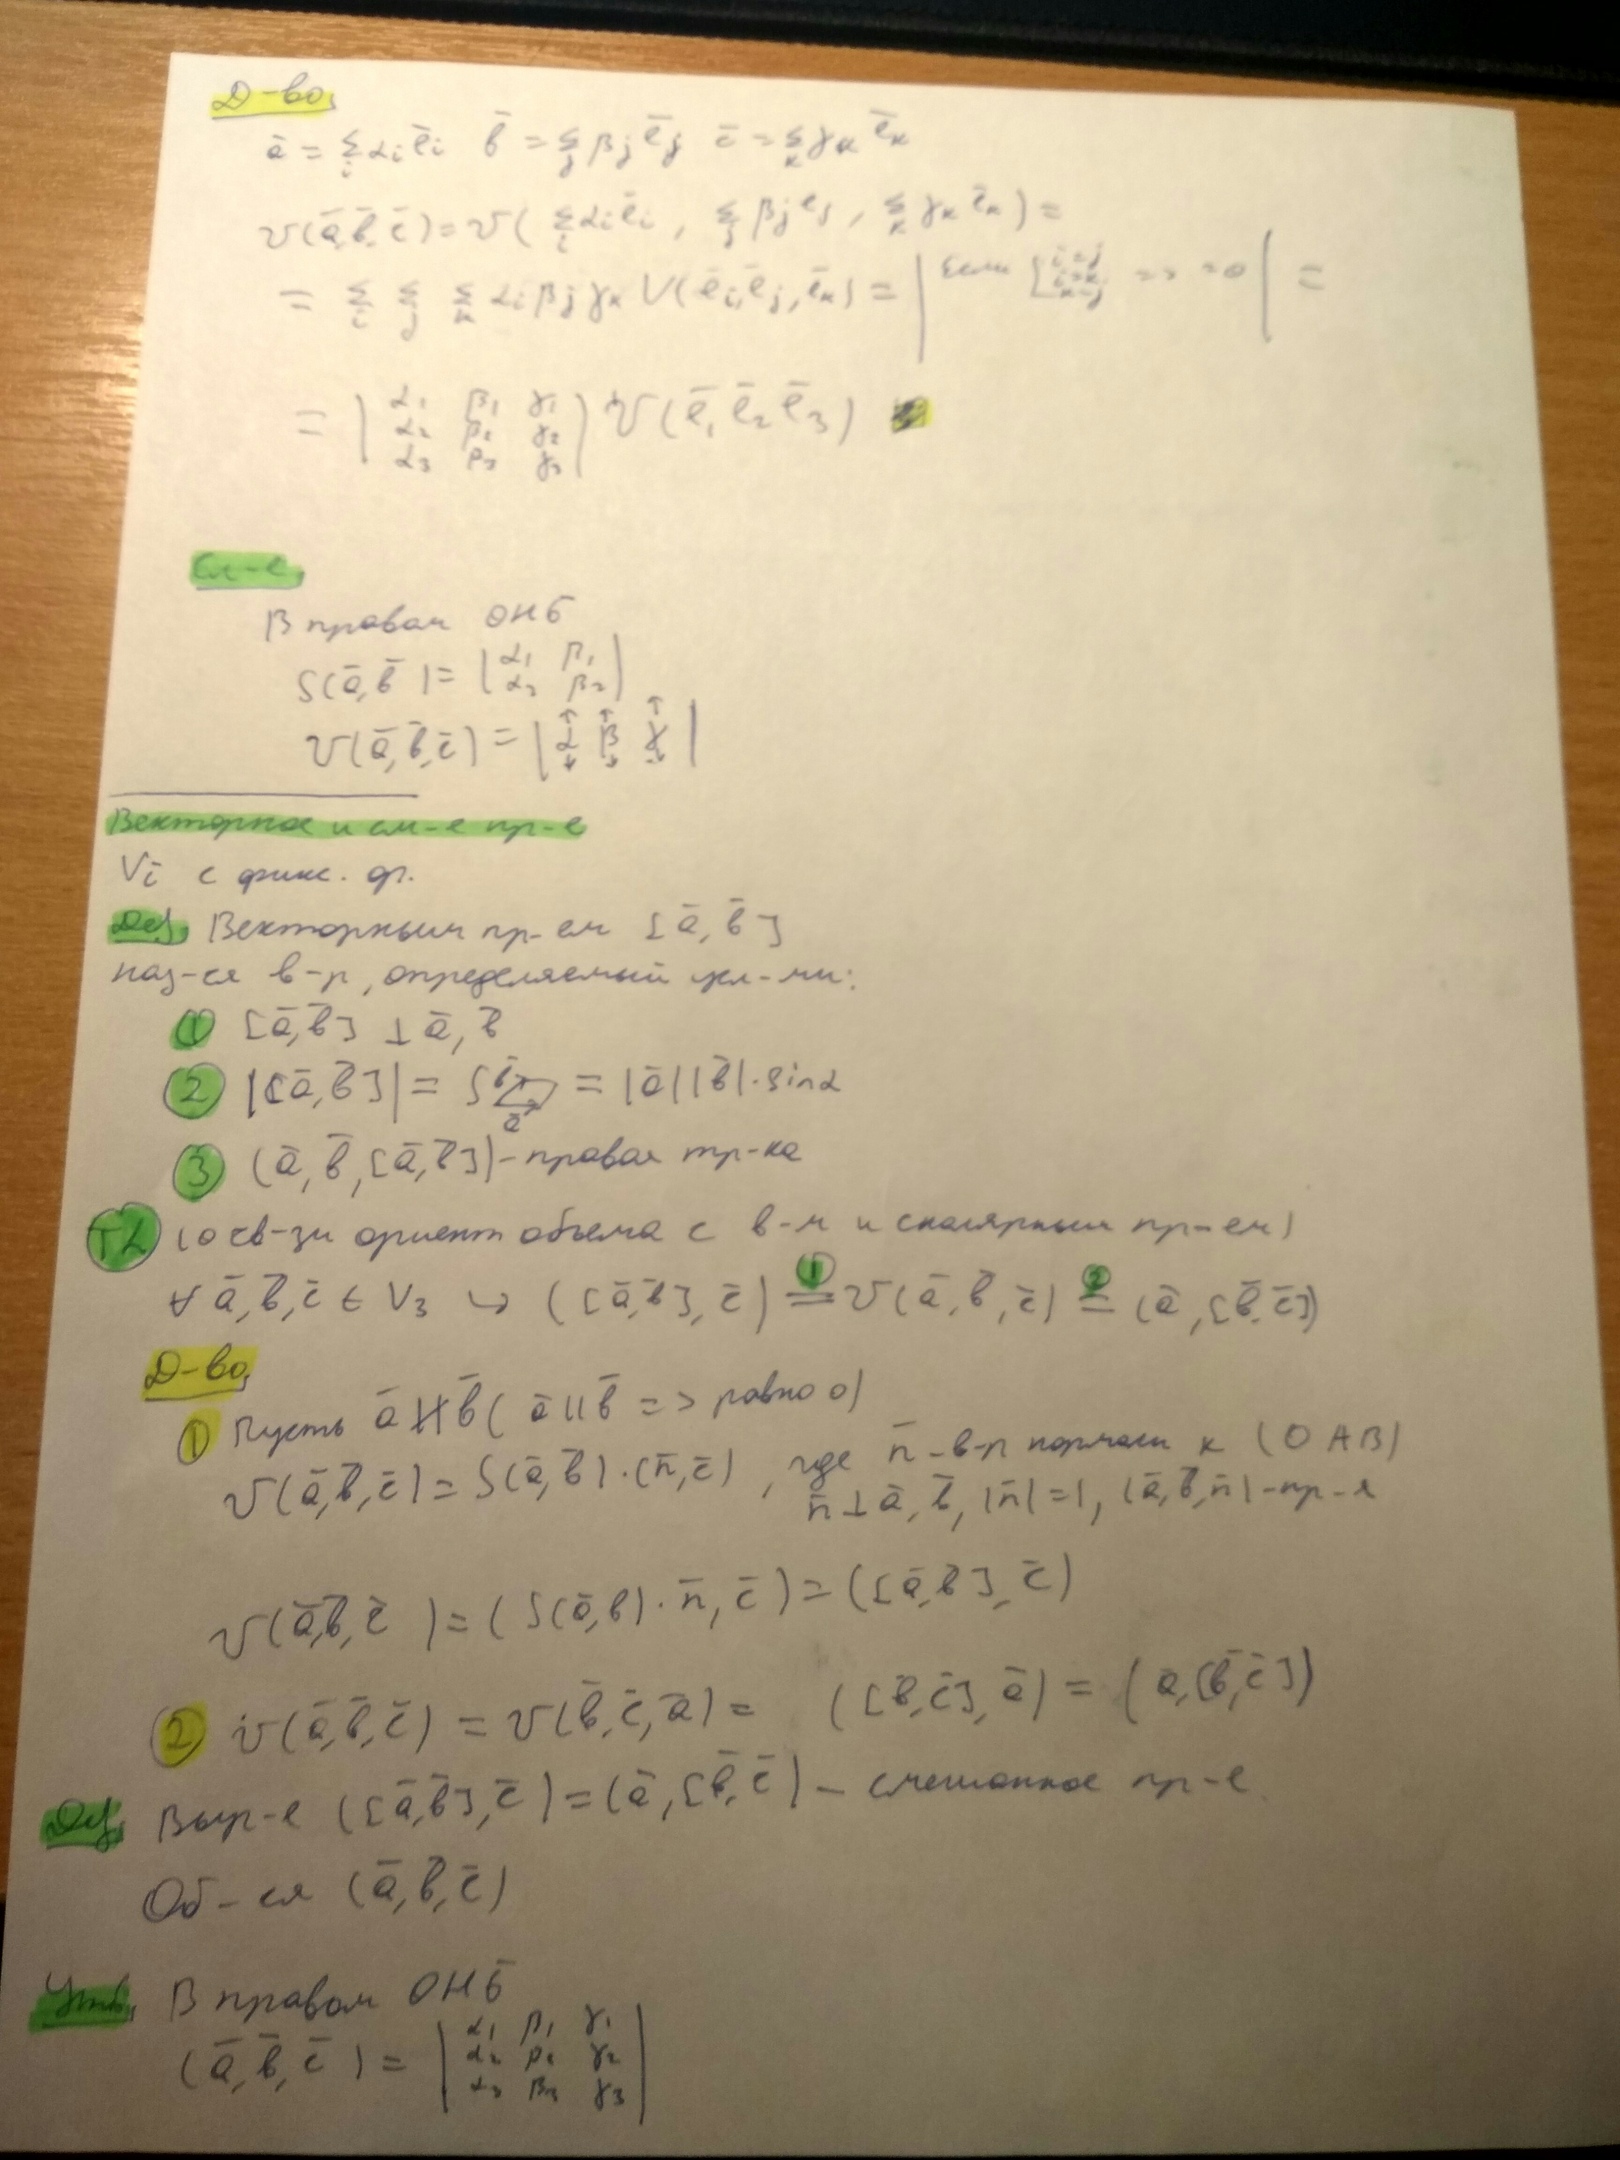 Д-во,
ā = Σ_i αi ēi   b̄ = Σ_j βj ēj   c̄ = Σ_k γk ēk
V(ā, b̄, c̄) = V( Σ_i αi ēi , Σ_j βj ej , Σ_k γk ēk ) =
= Σ_i Σ_j Σ_k αi βj γk V(ēi, ēj, ēk) = | Если [ i=j i=k k=j => =0 | =
= | α1 β1 γ1 | V(ē1 ē2 ē3)
| α2 β2 γ2 |
| α3 β3 γ3 |
Сл-е,
В правом ОНБ
S(ā, b̄) = | α1 β1 |
| α2 β2 |
V(ā, b̄, c̄) = | α β γ |
Векторное и см-е пр-е
Vi с фикс. ор.
Def, Векторным пр-ем [ā, b̄]
наз-ся в-р, определяемый усл-ми:
① [ā, b̄] ⊥ ā, b̄
② |[ā, b̄]| = S = |ā||b̄|·sinα
b̄
ā
③ (ā, b̄, [ā, b̄]) - правая тр-ка
(о св-зи ориент объема с в-м и скалярным пр-ем)
∀ ā, b̄, c̄ ∈ V3 ↪ ([ā, b̄], c̄) ①= V(ā, b̄, c̄) ②= (ā, [b̄, c̄])
Д-во,
① Пусть ā ∦ b̄ ( ā || b̄ => равно 0)
V(ā, b̄, c̄) = S(ā, b̄)·(n̄, c̄) , где n̄ - в-р нормали к (OAB)
n̄ ⊥ ā, b̄, |n̄| = 1, (ā, b̄, n̄) - пр-я
V(ā, b̄, c̄) = (S(ā, b)·n̄, c̄) = ([ā, b̄], c̄)
② V(ā, b̄, c̄) = V(b̄, c̄, ā) = ([b̄, c̄], ā) = (ā, [b̄, c̄])
Def, Выр-е ([ā, b̄], c̄) = (ā, [b̄, c̄) - смешанное пр-е
Об-ся (ā, b̄, c̄)
Утв, В правом ОНБ
(ā, b̄, c̄) = | α1 β1 γ1 |
| α2 β2 γ2 |
| α3 β3 γ3 |